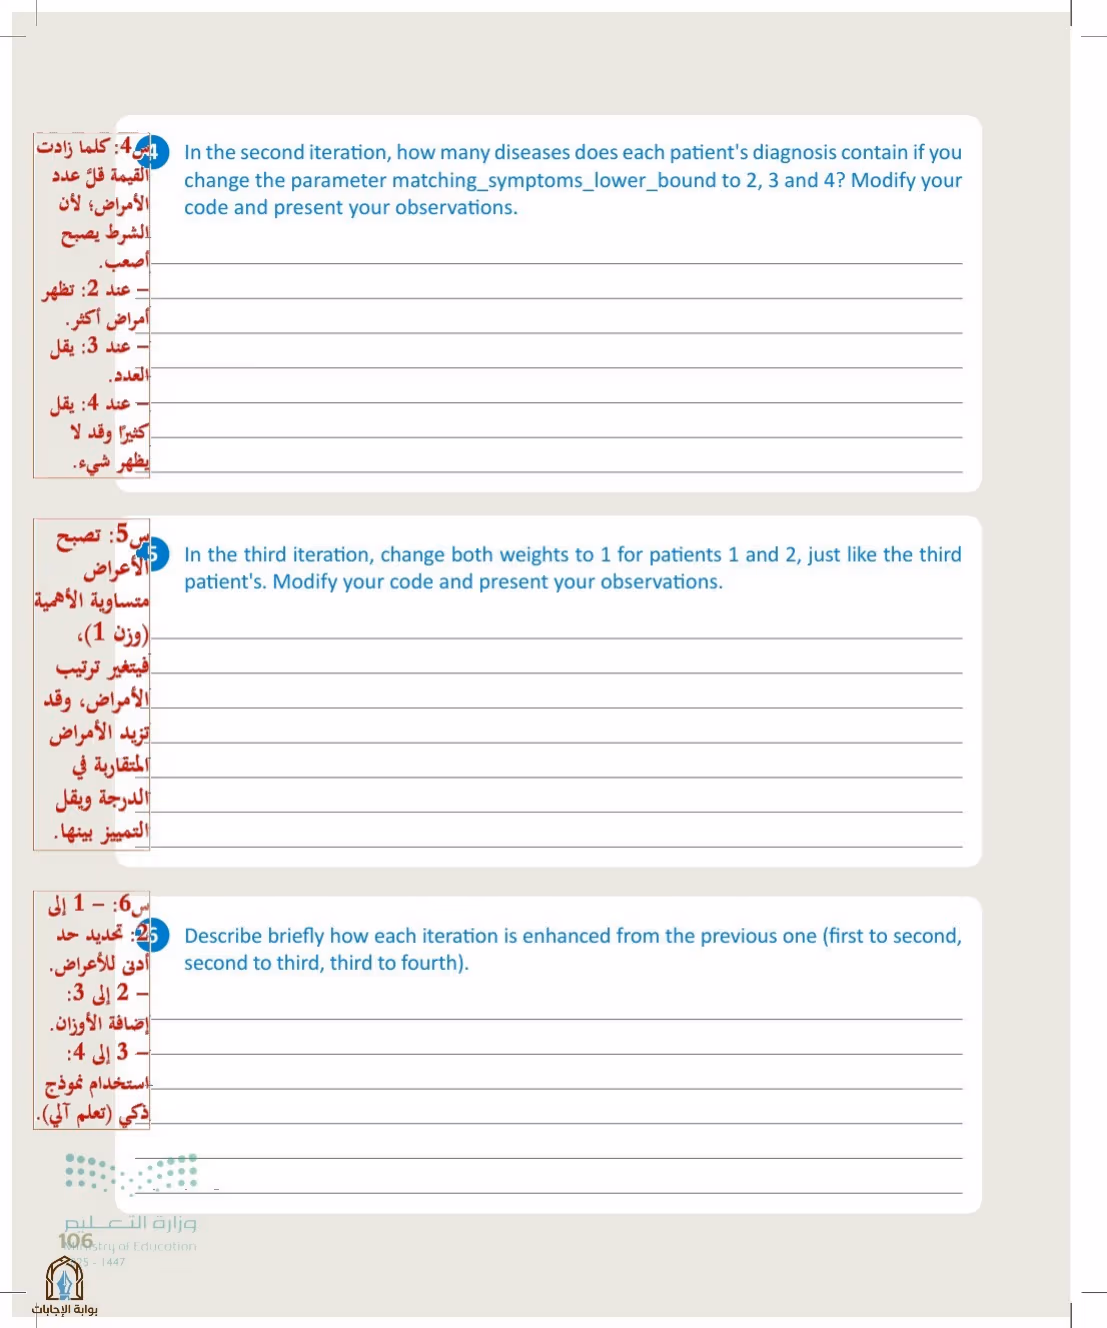 س4: كلما زادت
القيمة قلَّ عدد
الأمراض؛ لأن
الشرط يصبح
أصعب.
– عند 2: تظهر
أمراض أكثر.
– عند 3: يقل
العدد.
– عند 4: يقل
كثيرًا وقد لا
يظهر شيء.
4
In the second iteration, how many diseases does each patient's diagnosis contain if you
change the parameter matching_symptoms_lower_bound to 2, 3 and 4? Modify your
code and present your observations.
س5: تصبح
الأعراض
متساوية الأهمية
(وزن 1)،
فيتغير ترتيب
الأمراض، وقد
تزيد الأمراض
المتقاربة في
الدرجة ويقل
التمييز بينها.
5
In the third iteration, change both weights to 1 for patients 1 and 2, just like the third
patient's. Modify your code and present your observations.
س6: – 1 إلى
2: تحديد حد
أدنى للأعراض.
– 2 إلى 3:
إضافة الأوزان.
– 3 إلى 4:
استخدام نموذج
ذكي (تعلم آلي).
6
Describe briefly how each iteration is enhanced from the previous one (first to second,
second to third, third to fourth).
وزارة التعليم
106
Ministry of Education
25 - 1447
بوابة الإجابات